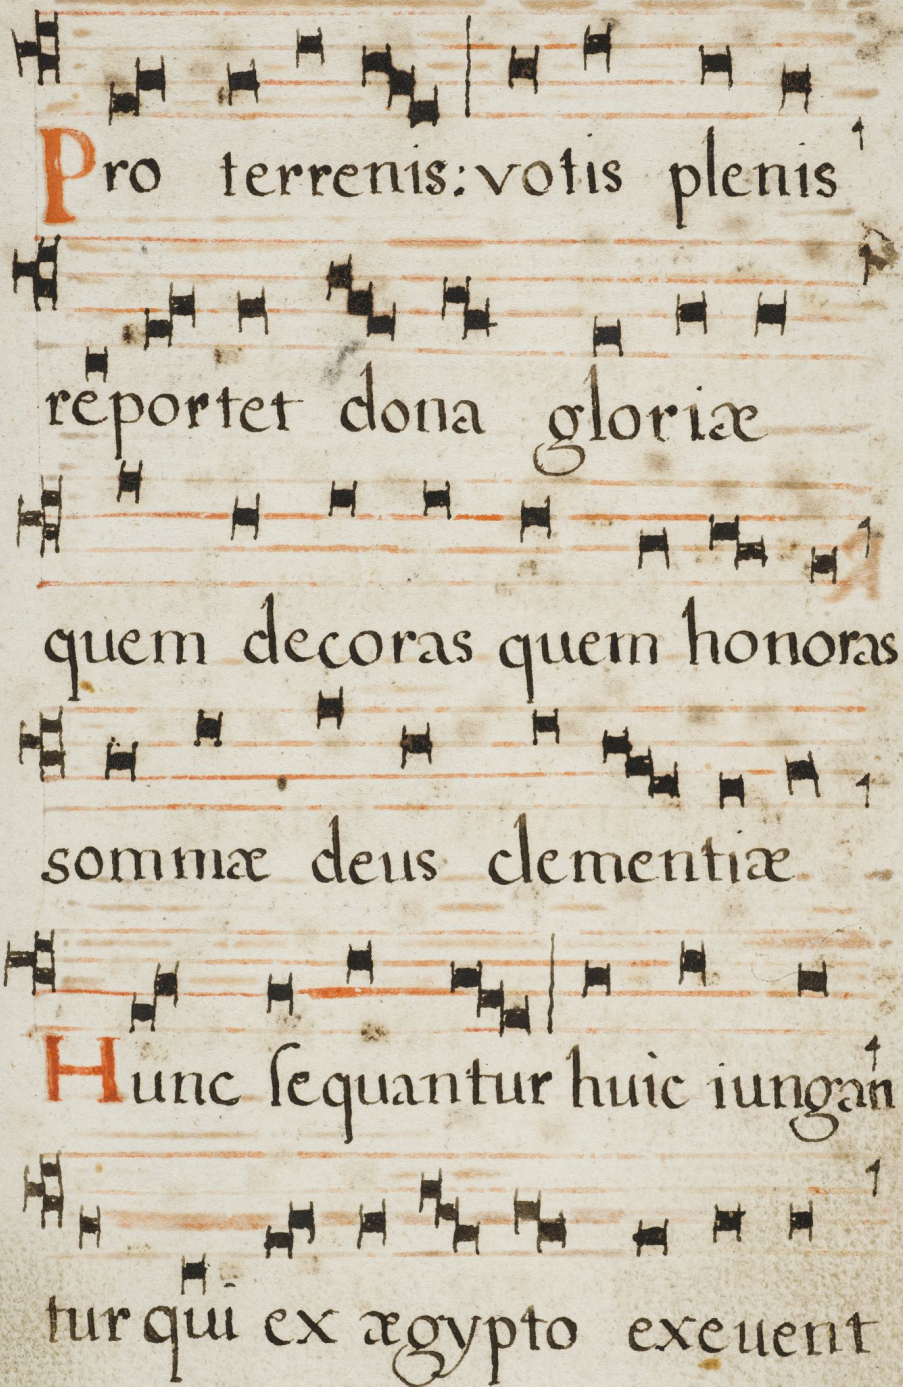 Pro terrenis: votis plenis
reportet dona gloriæ
quem decoras quem honoras
sommæ deus clementiæ
Hunc ſequantur huic iungan
tur qui ex ægypto exeuent